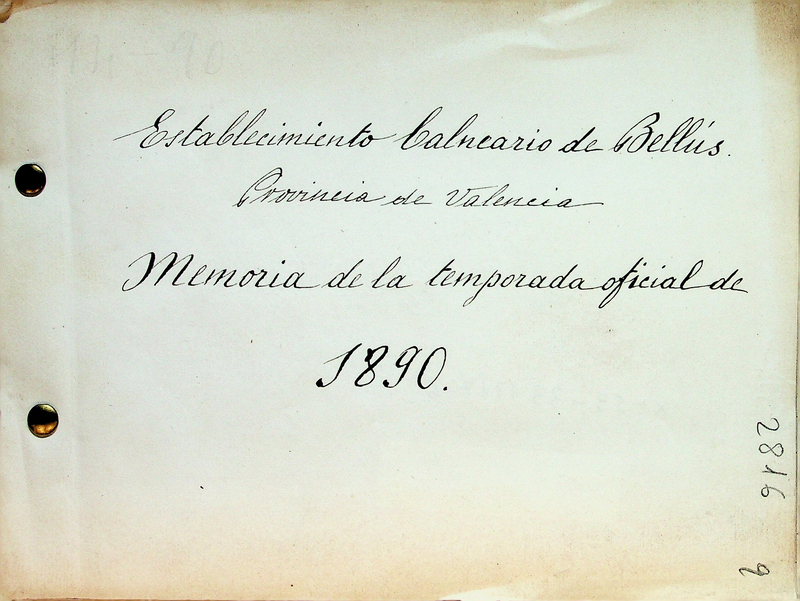 Establecimiento balneario de Bellús.
Provincia de Valencia
Memoria de la temporada oficial de
1890.
2816